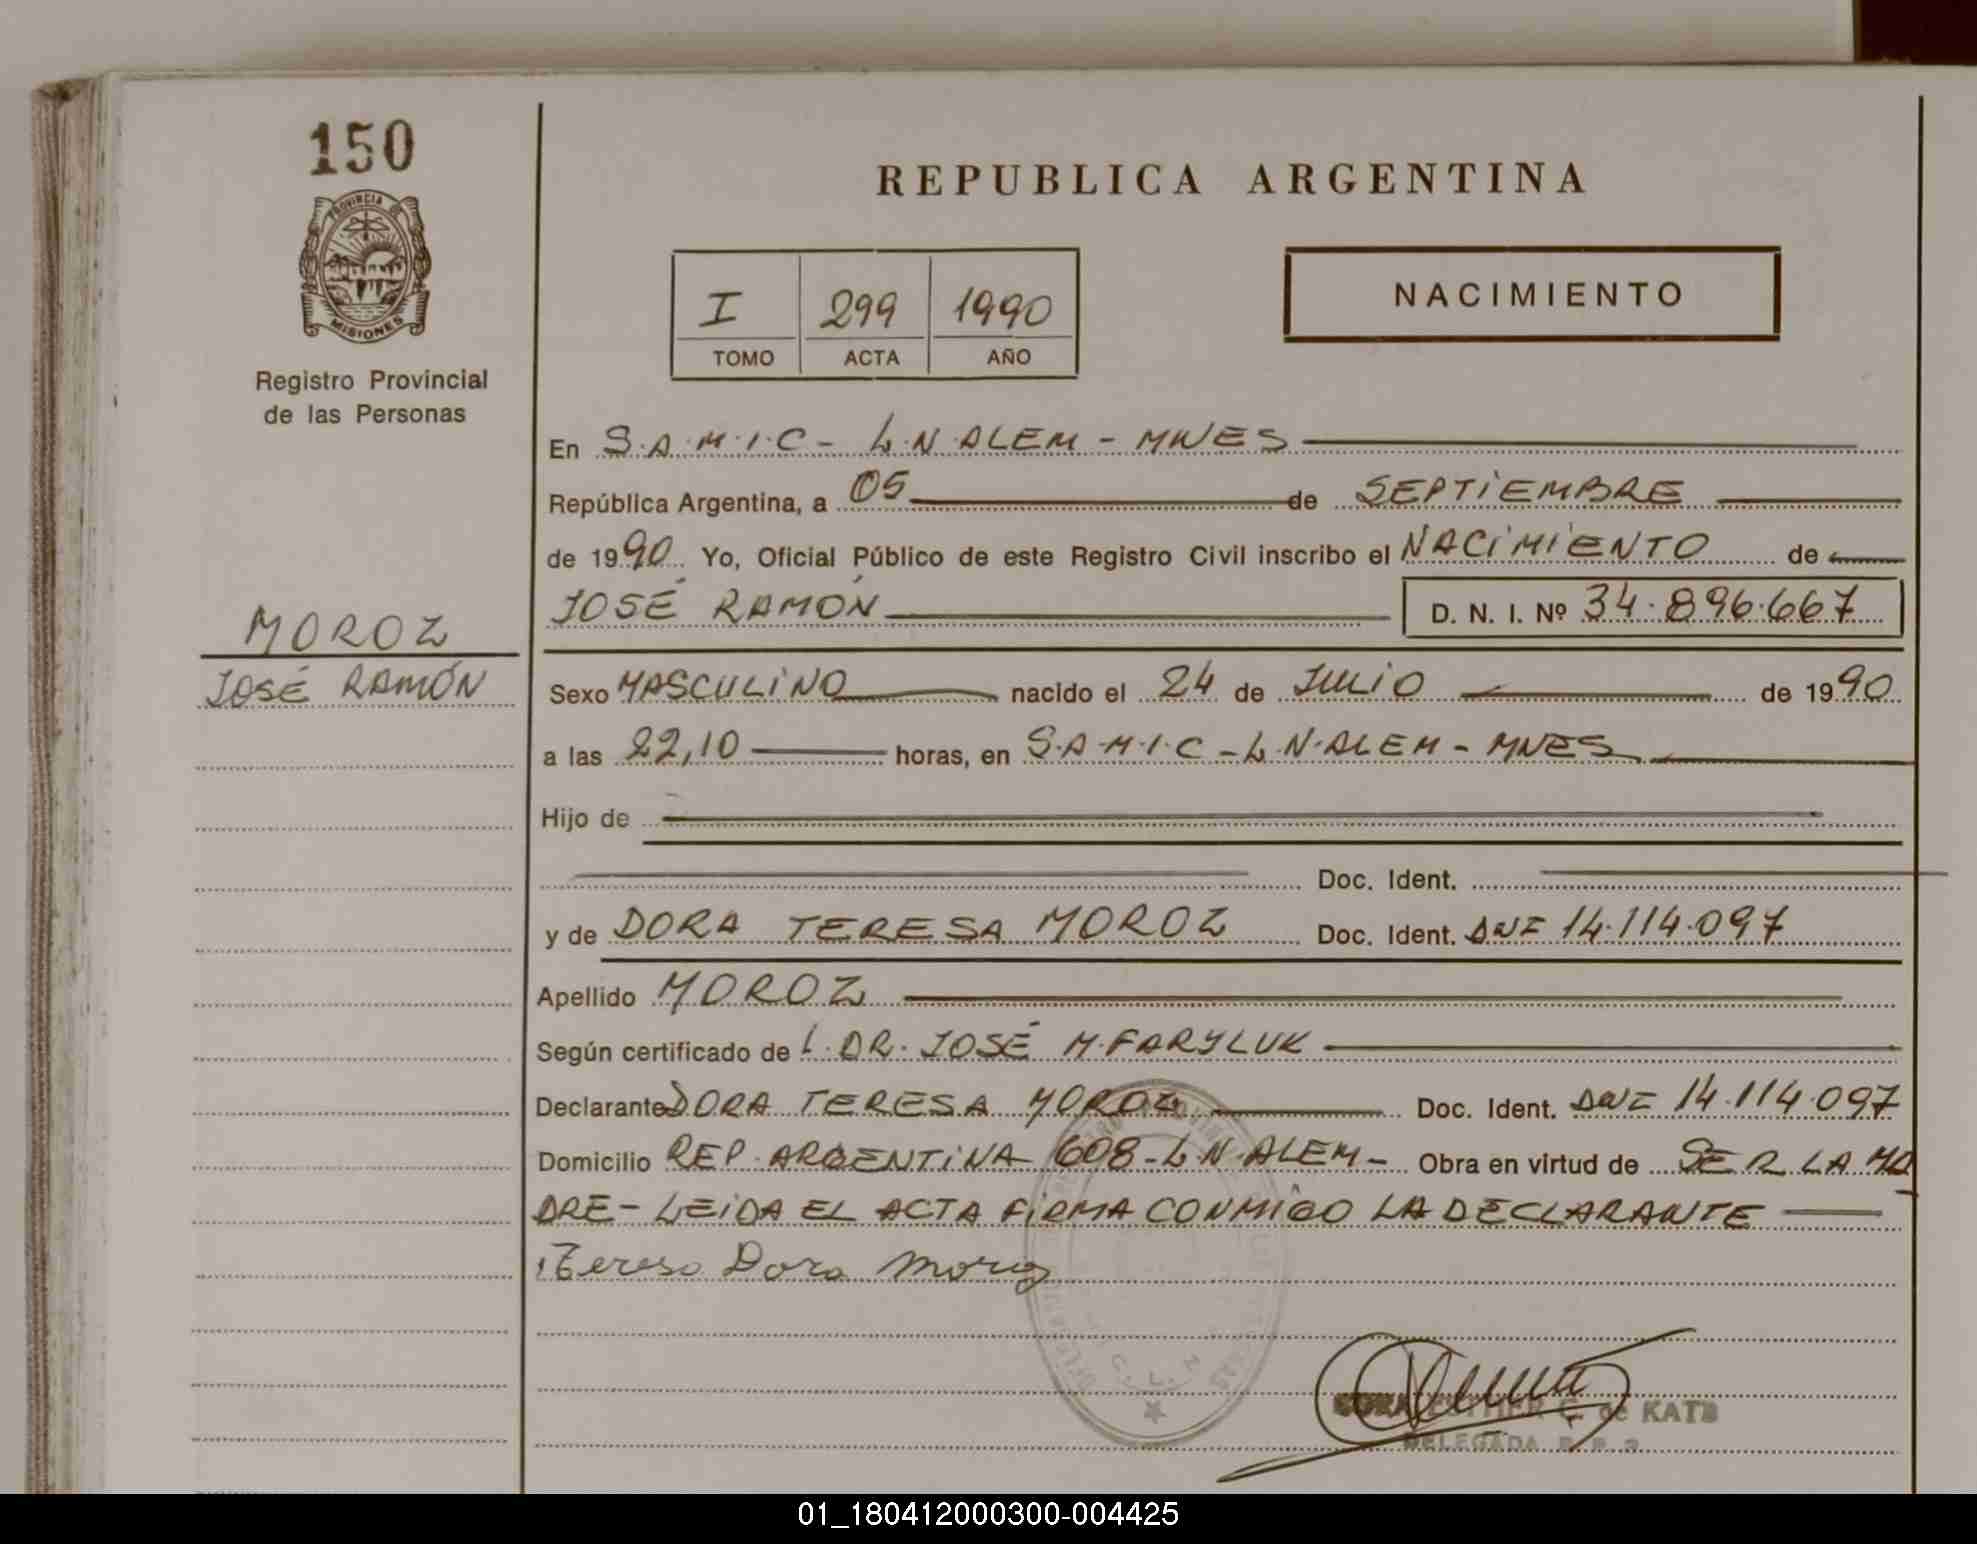 150
PROVINCIA DE
MISIONES
Registro Provincial
de las Personas
MOROZ
JOSÉ RAMÓN
REPUBLICA ARGENTINA
I 299 1990
TOMO ACTA AÑO
NACIMIENTO
En S.A.M.I.C - L.N.ALEM - MNES
República Argentina, a 05 de SEPTIEMBRE
de 1990 Yo, Oficial Público de este Registro Civil inscribo el NACIMIENTO de
JOSÉ RAMÓN D. N. I. Nº 34.896.667
Sexo MASCULINO nacido el 24 de JULIO de 1990
a las 22,10 horas, en S.A.M.I.C - L.N.ALEM - MNES
Hijo de
Doc. Ident.
y de DORA TERESA MOROZ Doc. Ident. DNI 14.114.097
Apellido MOROZ
Según certificado de L. DR. JOSÉ M. FARYLUK
Declarante DORA TERESA MOROZ Doc. Ident. DNI 14.114.097
Domicilio REP. ARGENTINA 608 - L.N.ALEM - Obra en virtud de SER LA MA
DRE - LEIDA EL ACTA FIRMA CONMIGO LA DECLARANTE
Teresa Dora Moroz
ESTHER C. de KATB
DELEGADA R. P.
01_180412000300-004425